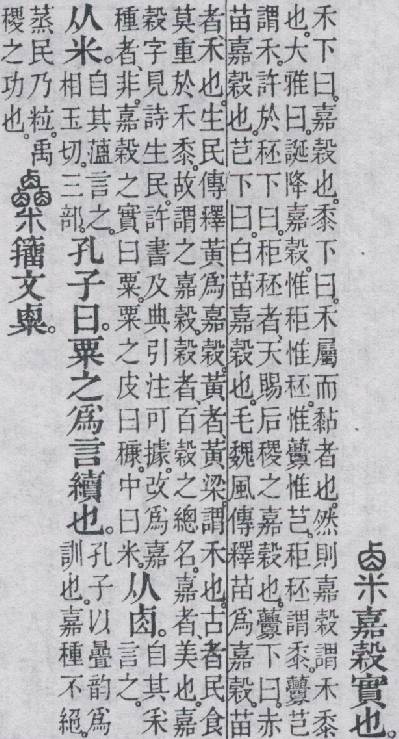 𥻆嘉穀實也。
禾下曰。嘉穀也。黍下曰。禾屬而黏者也。然則嘉穀謂禾黍
也。大雅曰。誕降嘉穀。惟秬惟秠。惟虋惟芑。秬秠謂黍。虋芑
謂禾。許於秠下曰。秬秠者、天賜后稷之嘉穀也。虋下曰。赤
苗嘉穀也。芑下曰。白苗嘉穀也。毛魏風傳釋苗爲嘉穀。苗
者禾也。生民傳釋黃爲嘉穀。黃者黃梁。謂禾也。古者民食
莫重於禾黍。故謂之嘉穀。穀者、百穀之總名。嘉者、美也。嘉
穀字見詩生民。許書及典引注可據。改爲嘉
種者非。嘉穀之實曰粟。粟之皮曰穅。中曰米。
从卤。
自其采
言之。
从米。
自其蘊言之。
相玉切。三部。
孔子曰。粟之爲言續也。
孔子以疊韵爲
訓也。嘉種不絕。
蒸民乃粒。禹
稷之功也。
籒文𥻆。